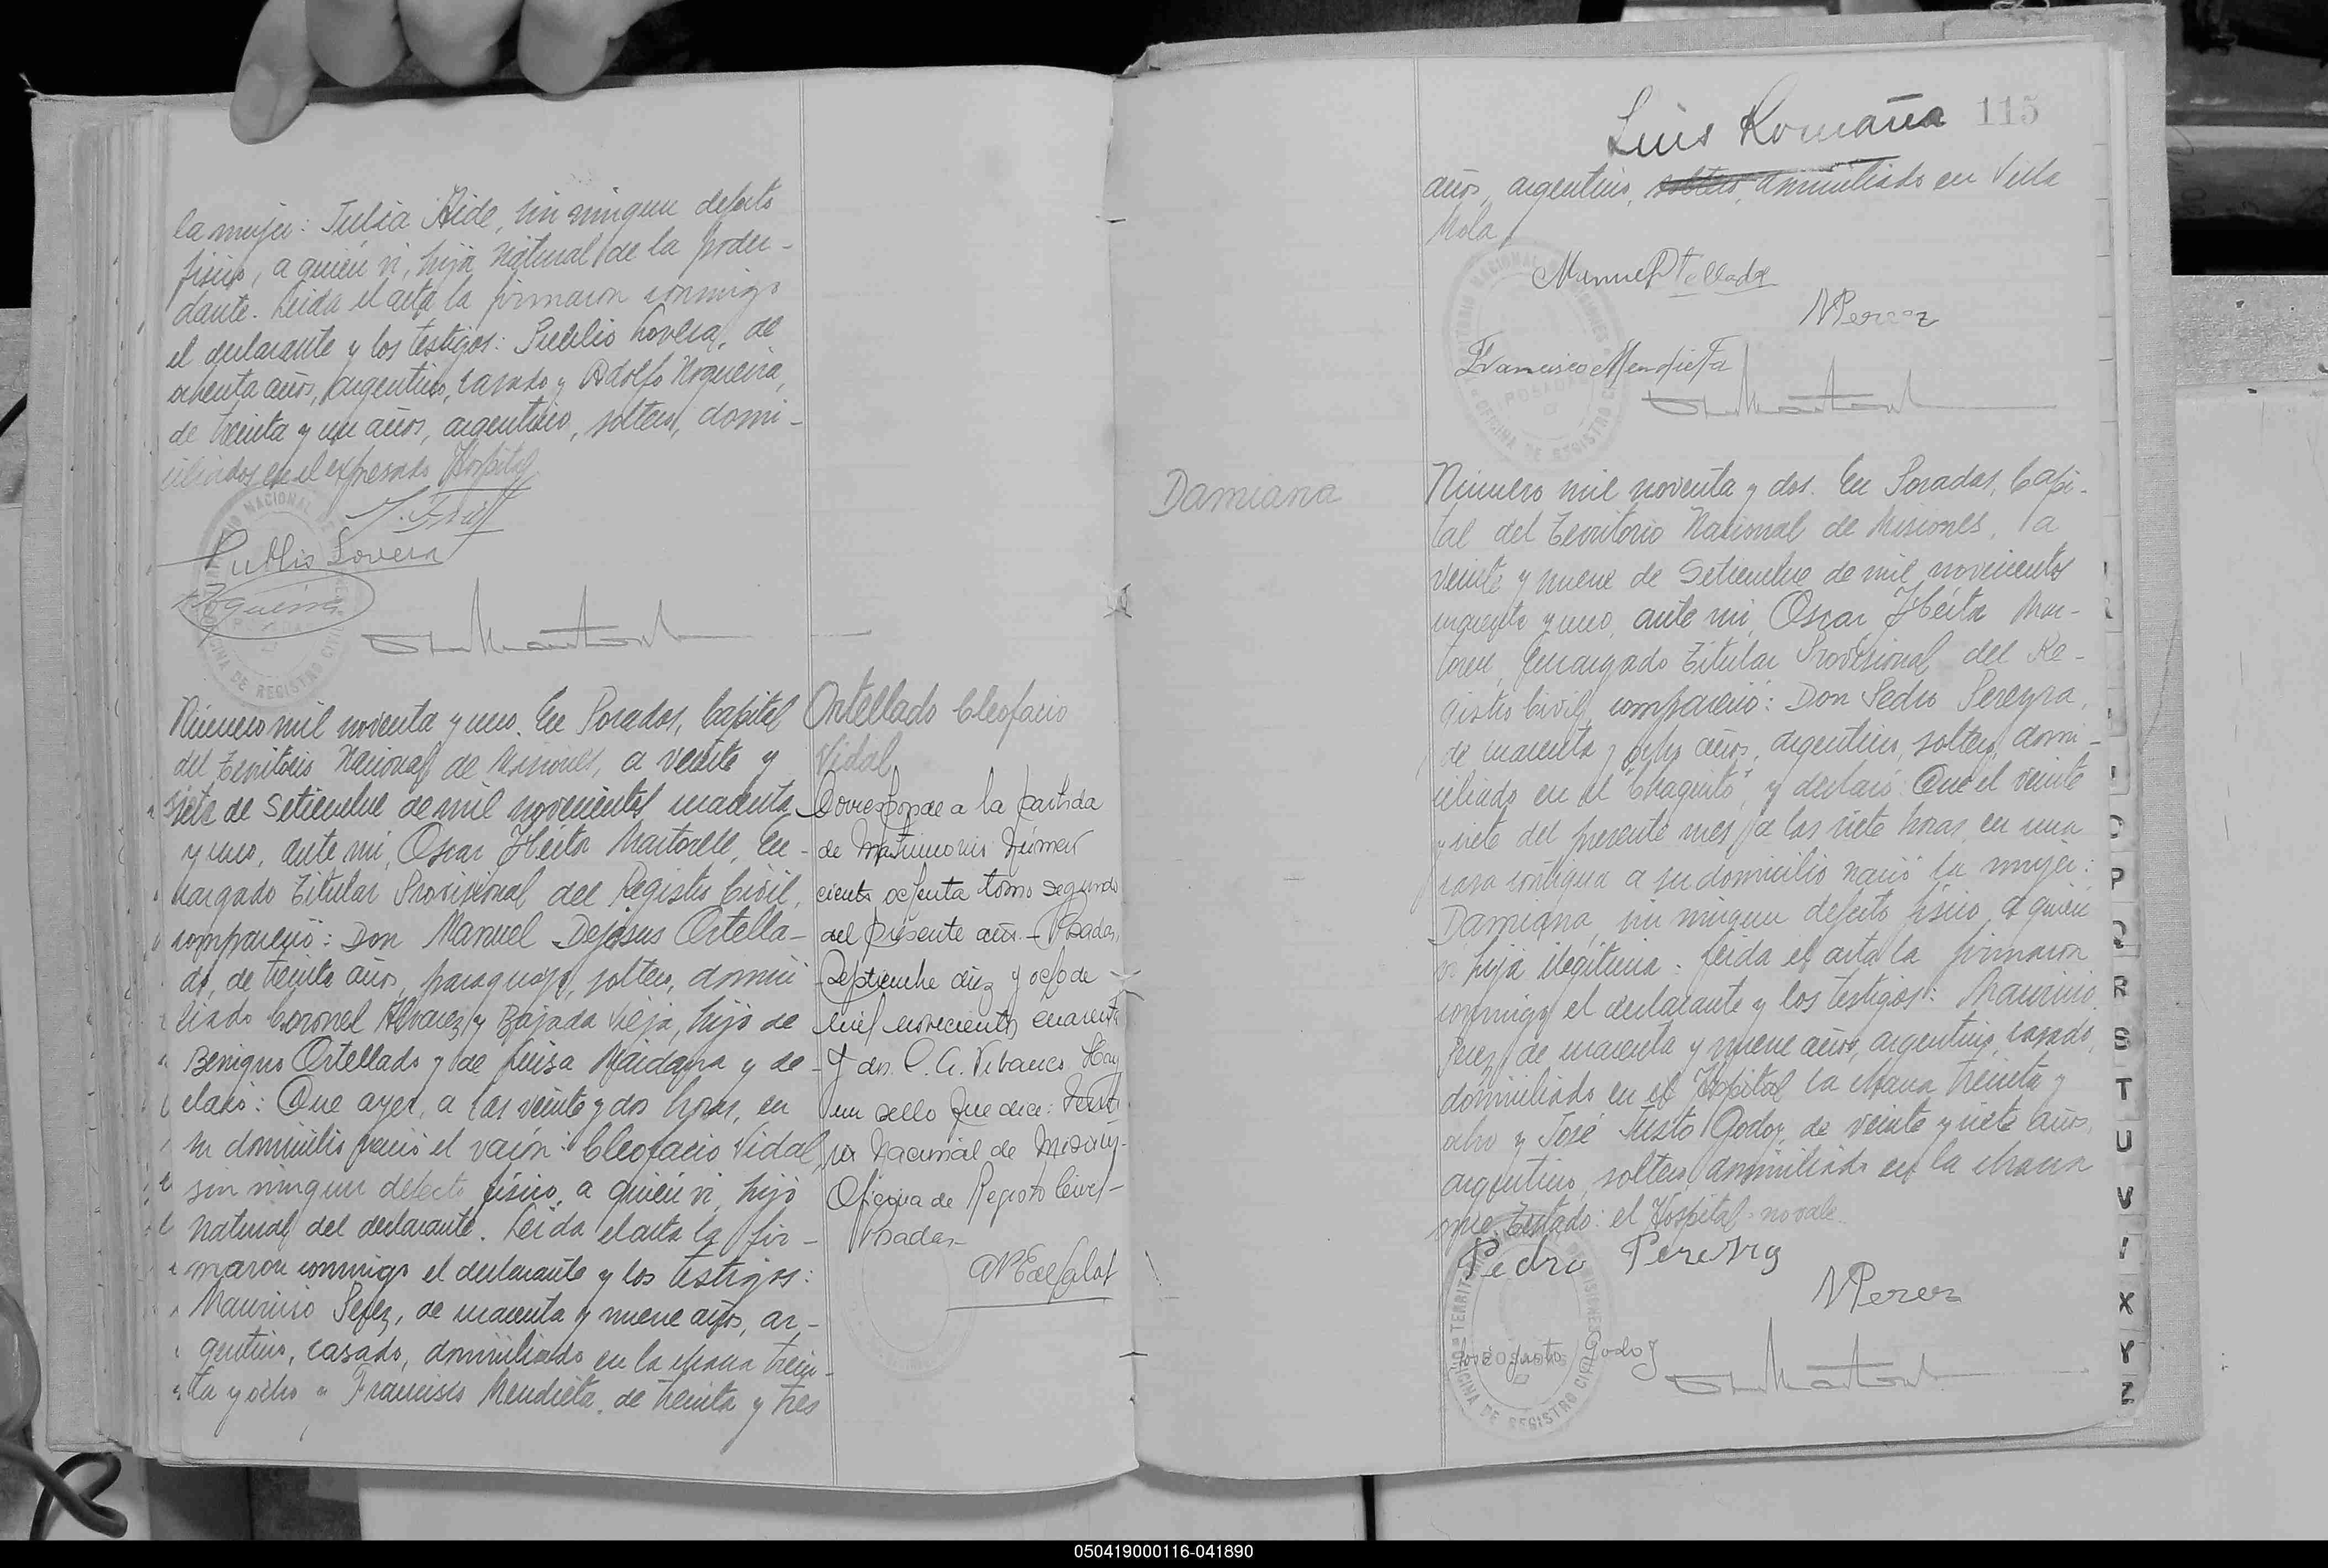 la mujer: Julia Aide, sin ningun defecto
fisico, a quién vi, hija natural de la poder-
dante. Leida el acta la firmaron conmigo
el declarante y los testigos: Publio Lovera, de
ochenta años, argentino, casado y Adolfo Nogueira,
de treinta y un años, argentino, soltero, domi-
ciliados en el expresado Hospital
Publio Lovera
Nogueira
Número mil noventa y uno. En Posadas, Capital
del Territorio Nacional de Misiones, a veinte y
siete de Setiembre de mil novecientos cuarenta
y uno, ante mi, Oscar Héctor Martorell, En-
cargado Titular Provisional del Registro Civil,
compareció: Don Manuel Dejesus Ortella-
do, de treinta años, paraguayo, soltero, domici
liado Coronel Alvarez y Bajada Vieja, hijo de
Benigno Ortellado y de Luisa Maidana y de-
claró: Que ayer, a las veinte y dos horas, en
su domicilio nació el varón: Cleofacio Vidal,
sin ningun defecto fisico, a quién vi, hijo
natural del declarante. Leida el acta la fir-
maron conmigo el declarante y los testigos:
Mauricio Perez, de cuarenta y nueve años, ar-
gentino, casado, domiciliado en la chacra trein-
ta y ocho y Francisco Mendieta, de treinta y tres
Ortellado Cleofacio
Vidal
Corresponde a la partida
de Matrimonio Número
ciento ochenta tomo segundo
del presente año.- Posadas,
Septiembre diez y ocho de
mil novecientos cuarenta
y dos. C. A. Vibanco Hay
un sello que dice: Territo
rio Nacional de Misiones-
Oficina de Registro Civil-
Posadas-
Luis Romaña 115
años, argentino, soltero, domiciliado en Villa
Mola.
Manuel Ortellado
M Perez
Francisco Mendieta
TERRITORIO NACIONAL DE MISIONES
OFICINA DE REGISTRO CIVIL
POSADAS
Damiana
Número mil noventa y dos. En Posadas, Capi-
tal del Territorio Nacional de Misiones, a
veinte y nueve de Setiembre de mil novecientos
cuarenta y uno, ante mi, Oscar Héctor Mar-
torell, Encargado Titular Provisional del Re-
gistro Civil, compareció: Don Pedro Pereyra,
de cuarenta y ocho años, argentino, soltero, domi-
ciliado en el "Chaquito", y declaró: Que el veinte
y siete del presente mes, a las siete horas, en una
casa contigua a su domicilio nació la mujer:
Damiana, sin ningun defecto fisico, a quién
vi hija ilegitima. Leida el acta la firmaron
conmigo el declarante y los testigos: Mauricio
Perez, de cuarenta y nueve años, argentino, casado,
domiciliado en el Hospital la chacra treinta y
ocho y José Justo Godoy, de veinte y siete años,
argentino, soltero, domiciliado en la chacra
Testado: el Hospital - no vale.
Pedro Pereyra
M Perez
José Justo Godoy
O
P
Q
R
S
T
U
V
X
Y
Z
050419000116-041890